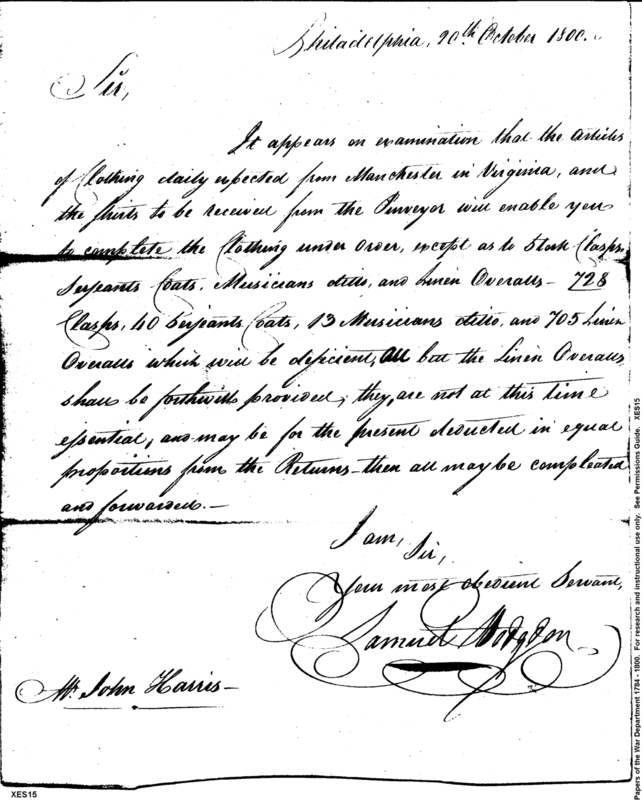 Philadelphia, 20th October 1800.
Sir,
It appears on examination that the articles
of Clothing daily expected from Manchester in Virginia, and
the shirts to be received from the Purveyor will enable you
to complete the Clothing under order, except as to Stock Clasps,
Serjeants Coats, Musicians ditto, and Linen Overalls - 728
Clasps, 40 Serjeants Coats, 13 Musicians ditto, and 705 Linen
Overalls which will be deficient, All but the Linen Overalls
shall be forthwith provided; they, are not at this time
essential, and may be for the present deducted in equal
proportions from the Returns - then all may be compleated
and forwarded. -
I am,
Sir,
Your most obedient Servant,
Samuel Hodgdon
Mr. John Harris -
XES15
Papers of the War Department 1784 - 1800. For research and instructional use only. See Permissions Guide. XES15